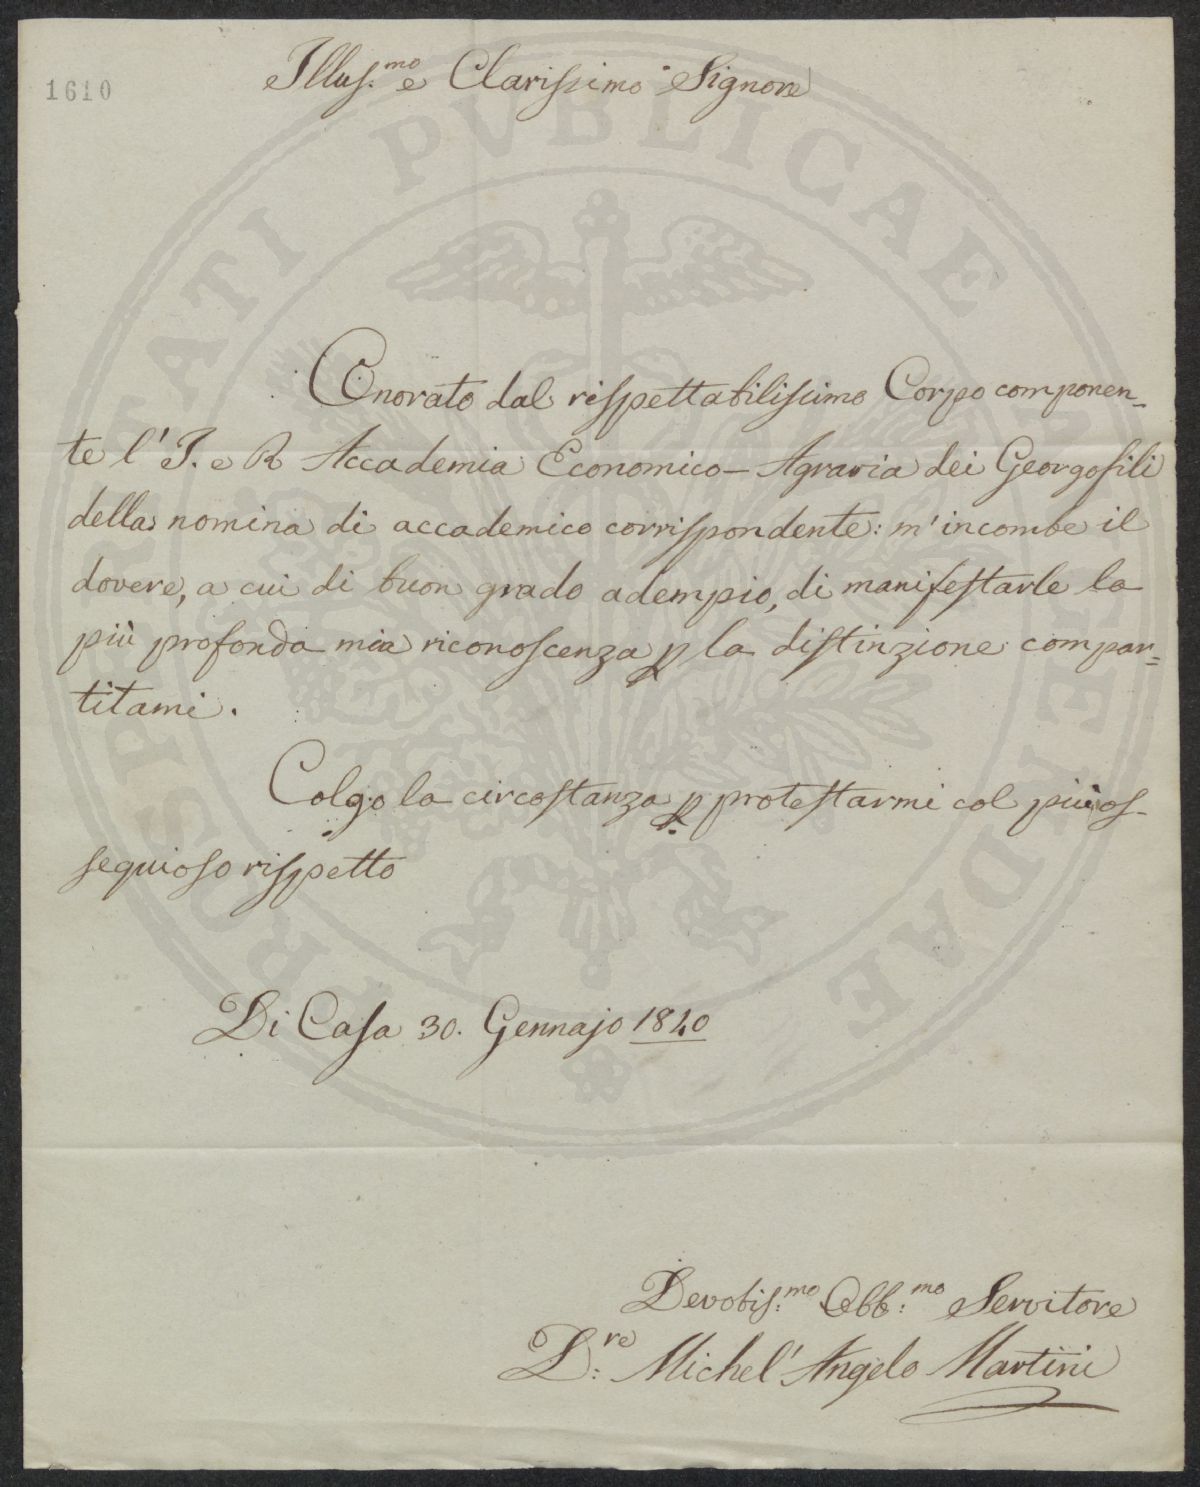 1610
Illus.mo e Clarissimo Signore
Onorato dal rispettabilissimo Corpo componen-
te l'I. e R Accademia Economico-Agraria dei Georgofili
della nomina di accademico corrispondente: m'incombe il
dovere, a cui di buon grado adempio, di manifestarle la
più profonda mia riconoscenza p la distinzione compar=
titami.
Colgo la circostanza p protestarmi col più os-
sequioso rispetto
Di Casa 30. Gennajo 1840
Devotis.mo Obb.mo Servitore
D.re Michel'Angelo Martini
PROSPERITATI PUBLICAE AUGENDAE